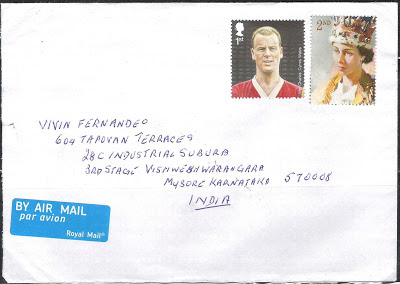 1st
2ND
VIVIN FERNANDEO
604 TAPOVAN TERRACES
28C INDUSTRIAL SUBURB
3RD STAGE VISHWESHWARANGARA
MYSORE KARNATAKA 570008
INDIA
BY AIR MAIL
par avion
Royal Mail®